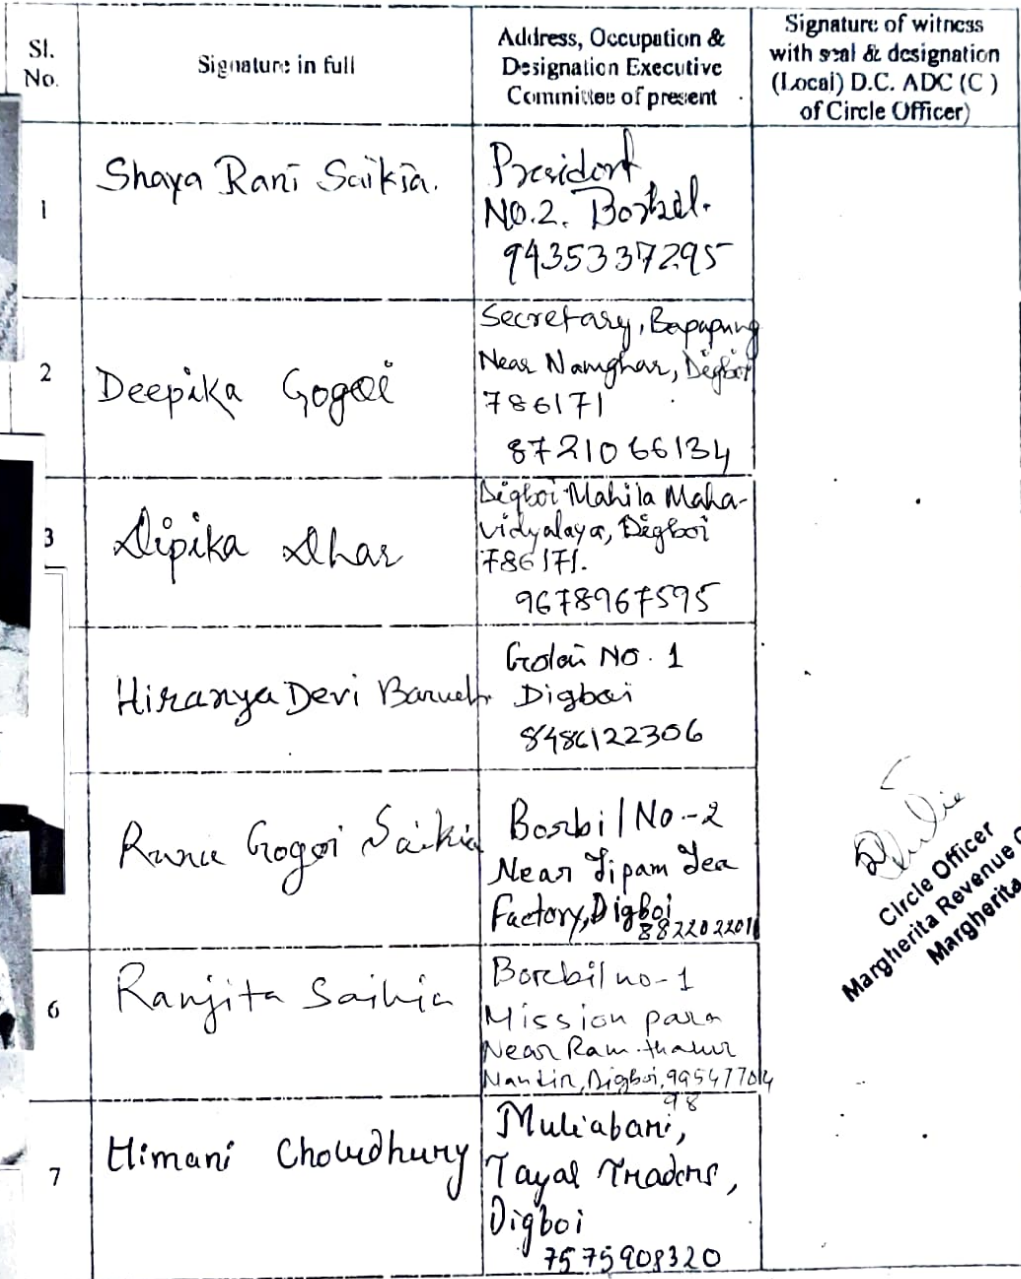 Sl.
No.
Signature in full
Address, Occupation &
Designation Executive
Committee of present
Signature of witness
with seal & designation
(Local) D.C. ADC (C )
of Circle Officer)
1
Shaya Rani Saikia.
President
NO.2. Borbil.
9435337295
2
Deepika Gogoi
Secretary, Bapapung
Near Namghar, Digboi
786171
8721066134
3
Dipika Dhar
Digboi Mahila Maha-
vidyalaya, Digboi
786171.
9678967595
Hiranya Devi Baruah
Golai NO. 1
Digboi
8486122306
Runu Gogoi Saikia
Borbil No.-2
Near Tipam Tea
Factory, Digboi
6
Ranjita Saikia
Borbil no-1
Mission para
Near Ram thakur
Mandir, Digboi, 99547704
98
7
Himani Chowdhury
Muliabari,
Tayal Traders,
Digboi
7575908320
Circle Officer
Margherita Revenue
Margherita